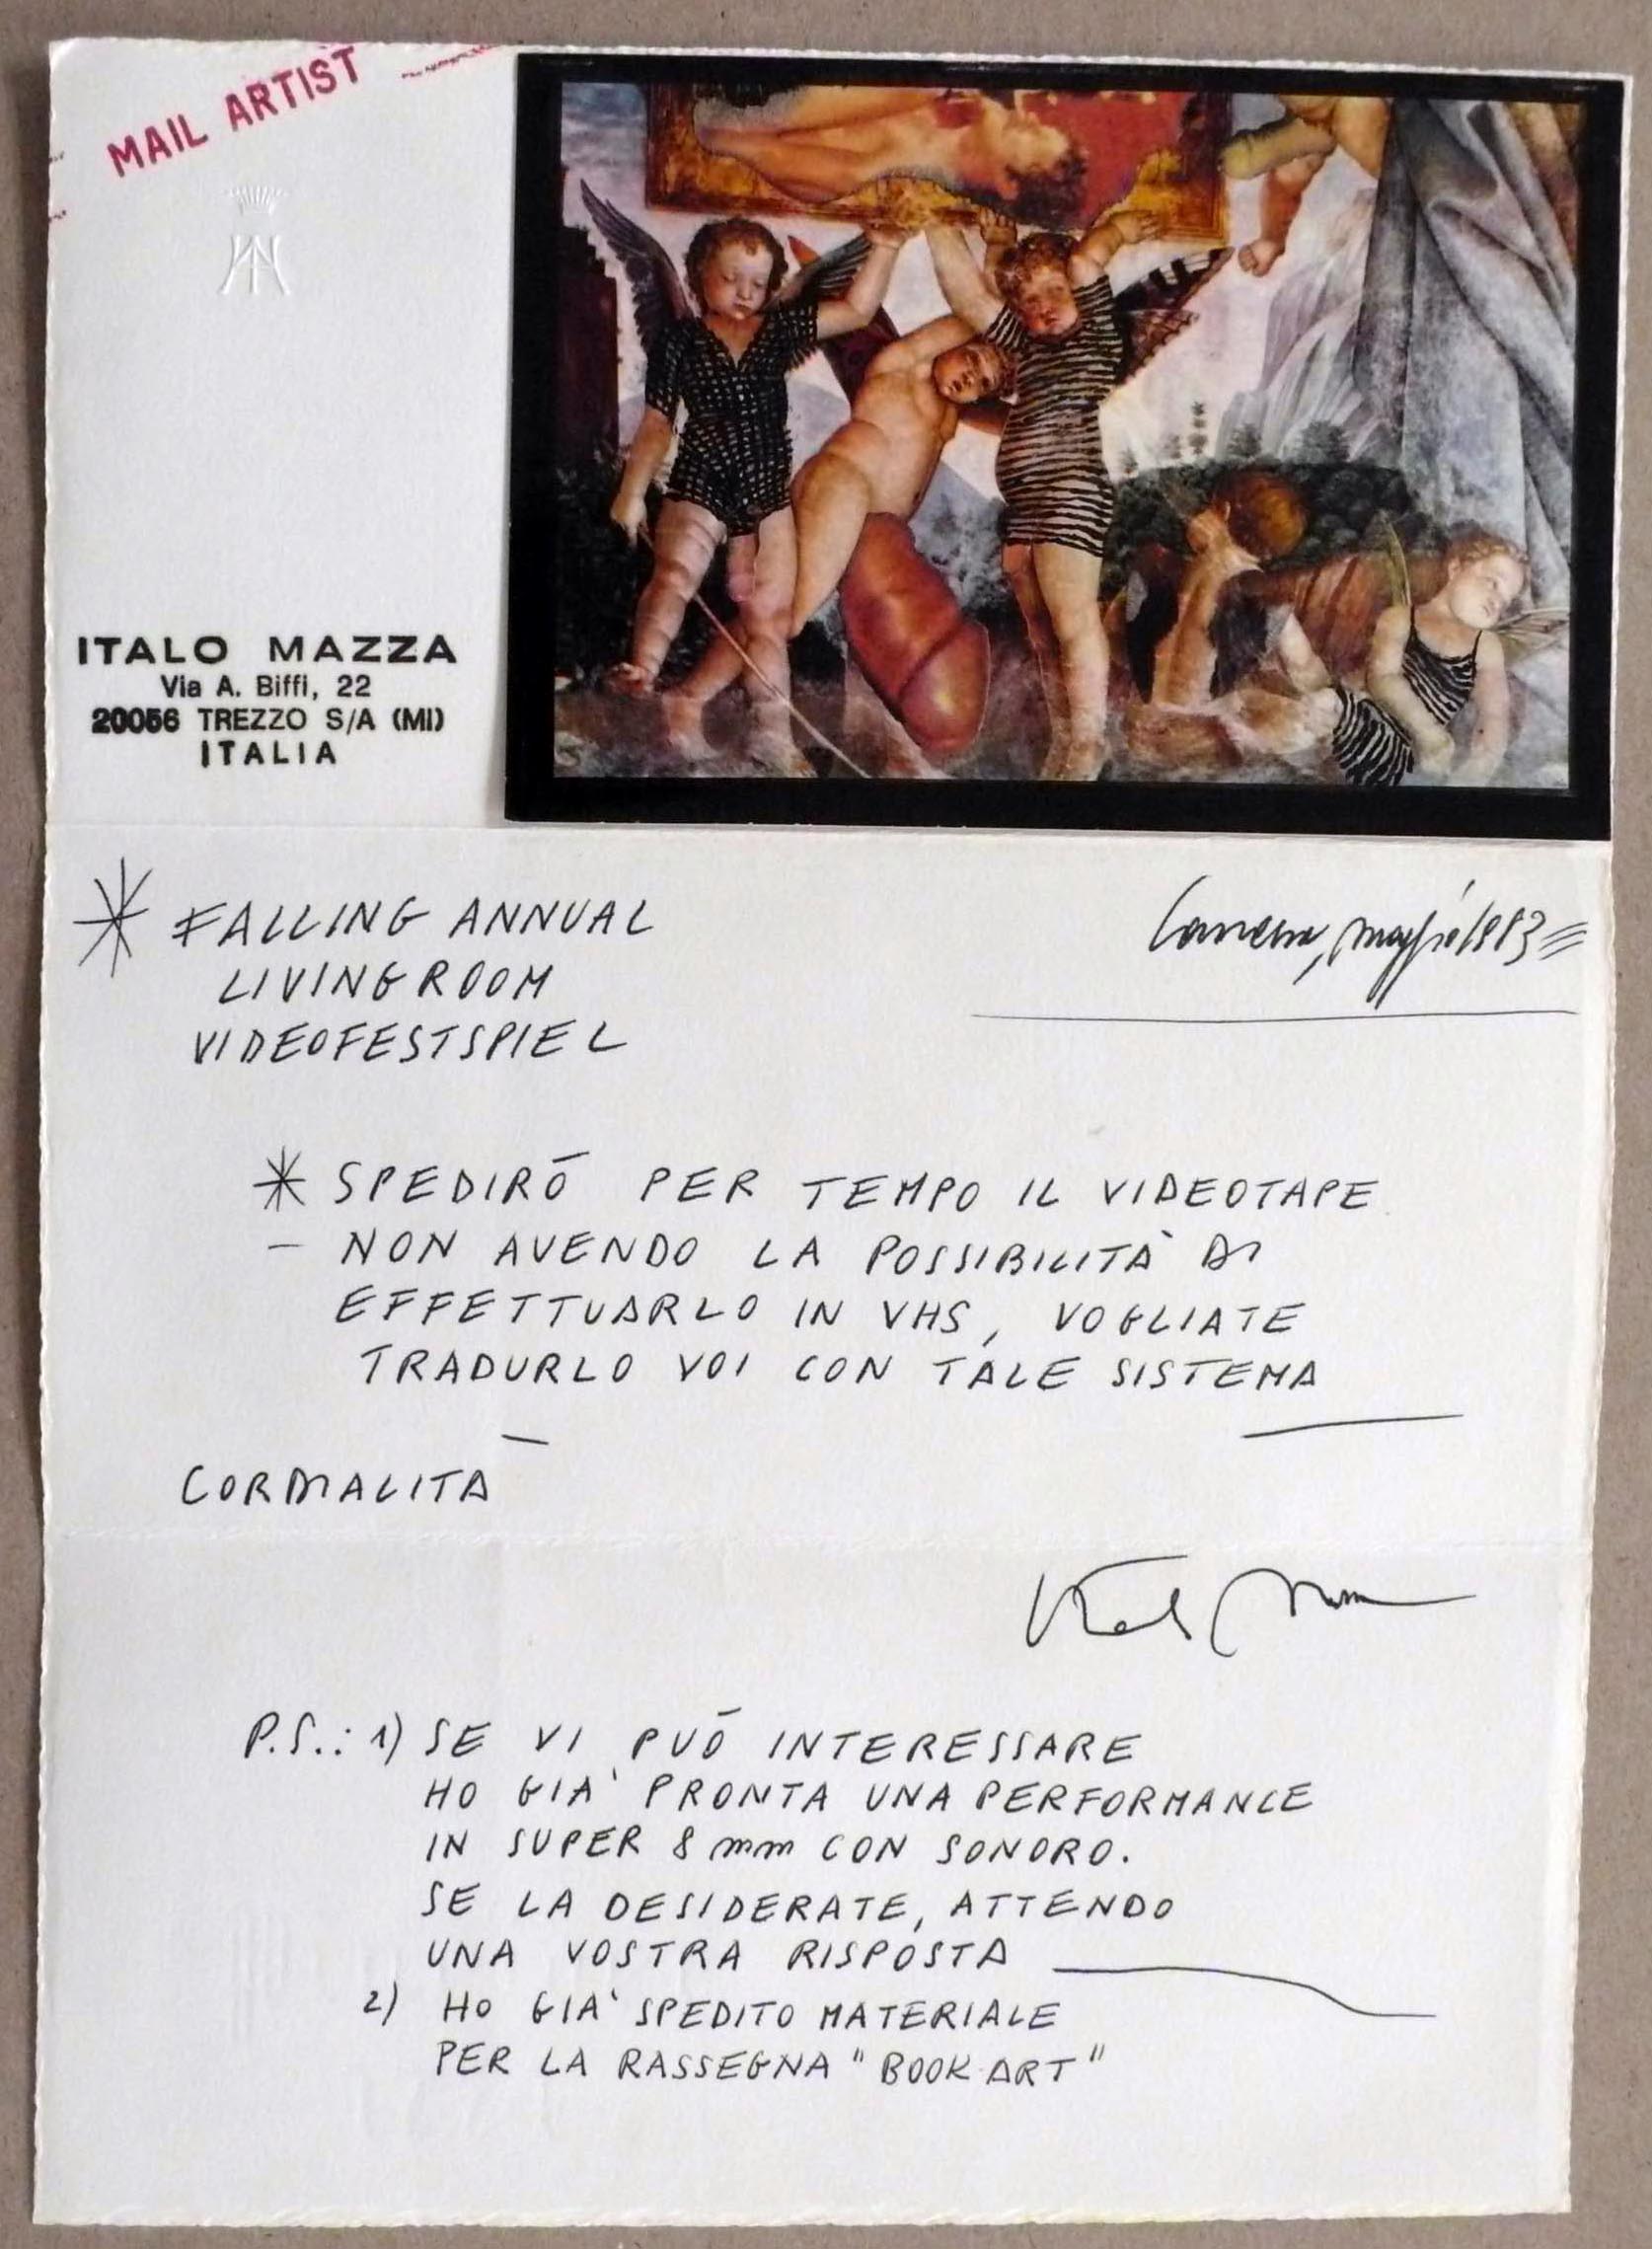 MAIL ARTIST
ITALO MAZZA
Via A. Biffi, 22
20056 TREZZO S/A (MI)
ITALIA
FALLING ANNUAL
LIVINGROOM
VIDEOFESTSPIEL
1983
* SPEDIRÒ PER TEMPO IL VIDEOTAPE
– NON AVENDO LA POSSIBILITÀ DI
EFFETTUARLO IN VHS, VOGLIATE
TRADURLO VOI CON TALE SISTEMA
CORDIALITÀ
P.S.: 1) SE VI PUÒ INTERESSARE
HO GIA' PRONTA UNA PERFORMANCE
IN SUPER 8 mm CON SONORO.
SE LA DESIDERATE, ATTENDO
UNA VOSTRA RISPOSTA
2) HO GIA' SPEDITO MATERIALE
PER LA RASSEGNA "BOOK ART"